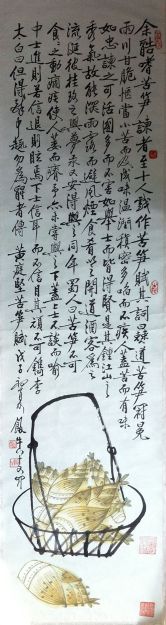 余酷嗜苦笋諫者至十人戲作苦笋賦其詞曰僰道苦笋冠冕
兩川甘脆愜當小苦而及成味温潤稹密多啗而不疾人蓋苦而有味
如忠諫之可活國多而不害如舉士而皆得賢是其鍾江山之
秀氣故能深雨露而避風煙食肴以之開道酒客爲之
流涎彼桂玫之與夢汞又安得與之同年蜀人曰苦笋不可
食食之動痼疾使人萎而瘠予亦未嘗與之下蓋上士不談而喻
中士進則若信退則眩焉下士信耳而不信目其頑不可鐫李
太白曰但得酒中趣勿爲醒者傳 黄庭堅苦笋賦 戊子